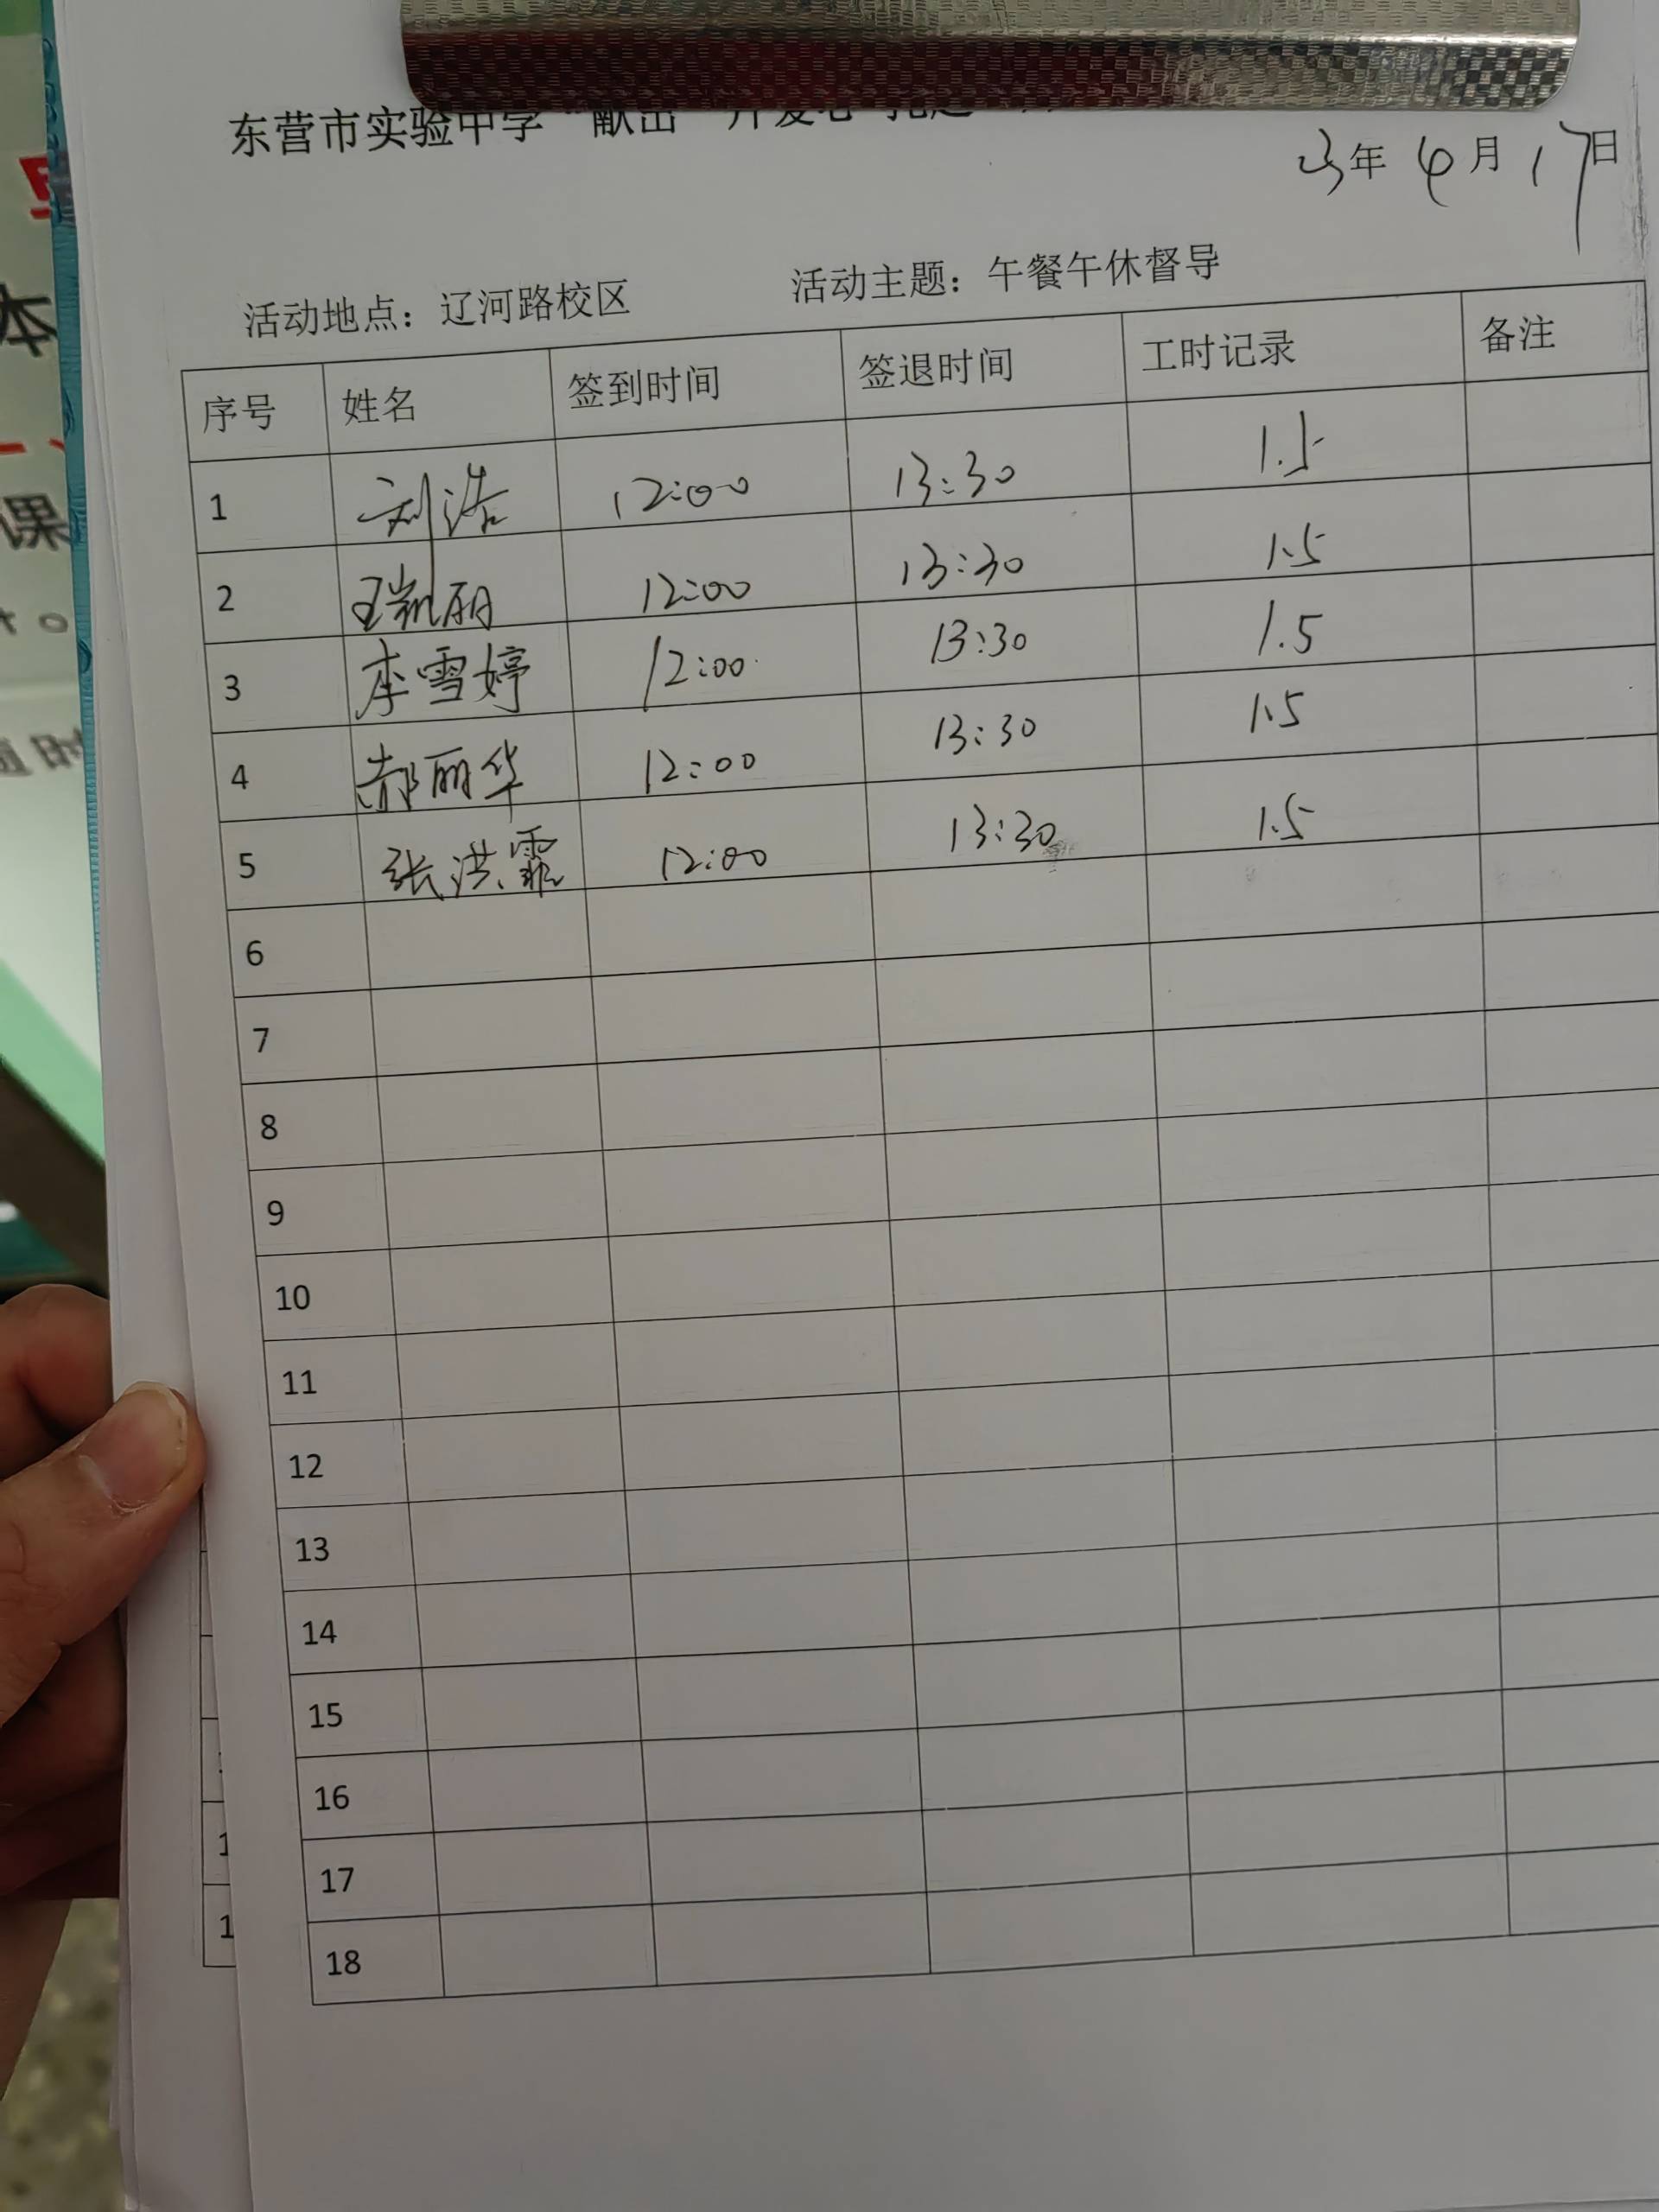 东营市实验中学“献出一片爱心
23年4月17日
活动地点：辽河路校区 活动主题：午餐午休督导
序号 姓名 签到时间 签退时间 工时记录 备注
1 刘浩 12:00 13:30 1.5
2 王凯丽 12:00 13:30 1.5
3 李雪婷 12:00 13:30 1.5
4 郝丽华 12:00 13:30 1.5
5 张洪霏 12:00 13:30 1.5
6
7
8
9
10
11
12
13
14
15
16
17
18
本
课